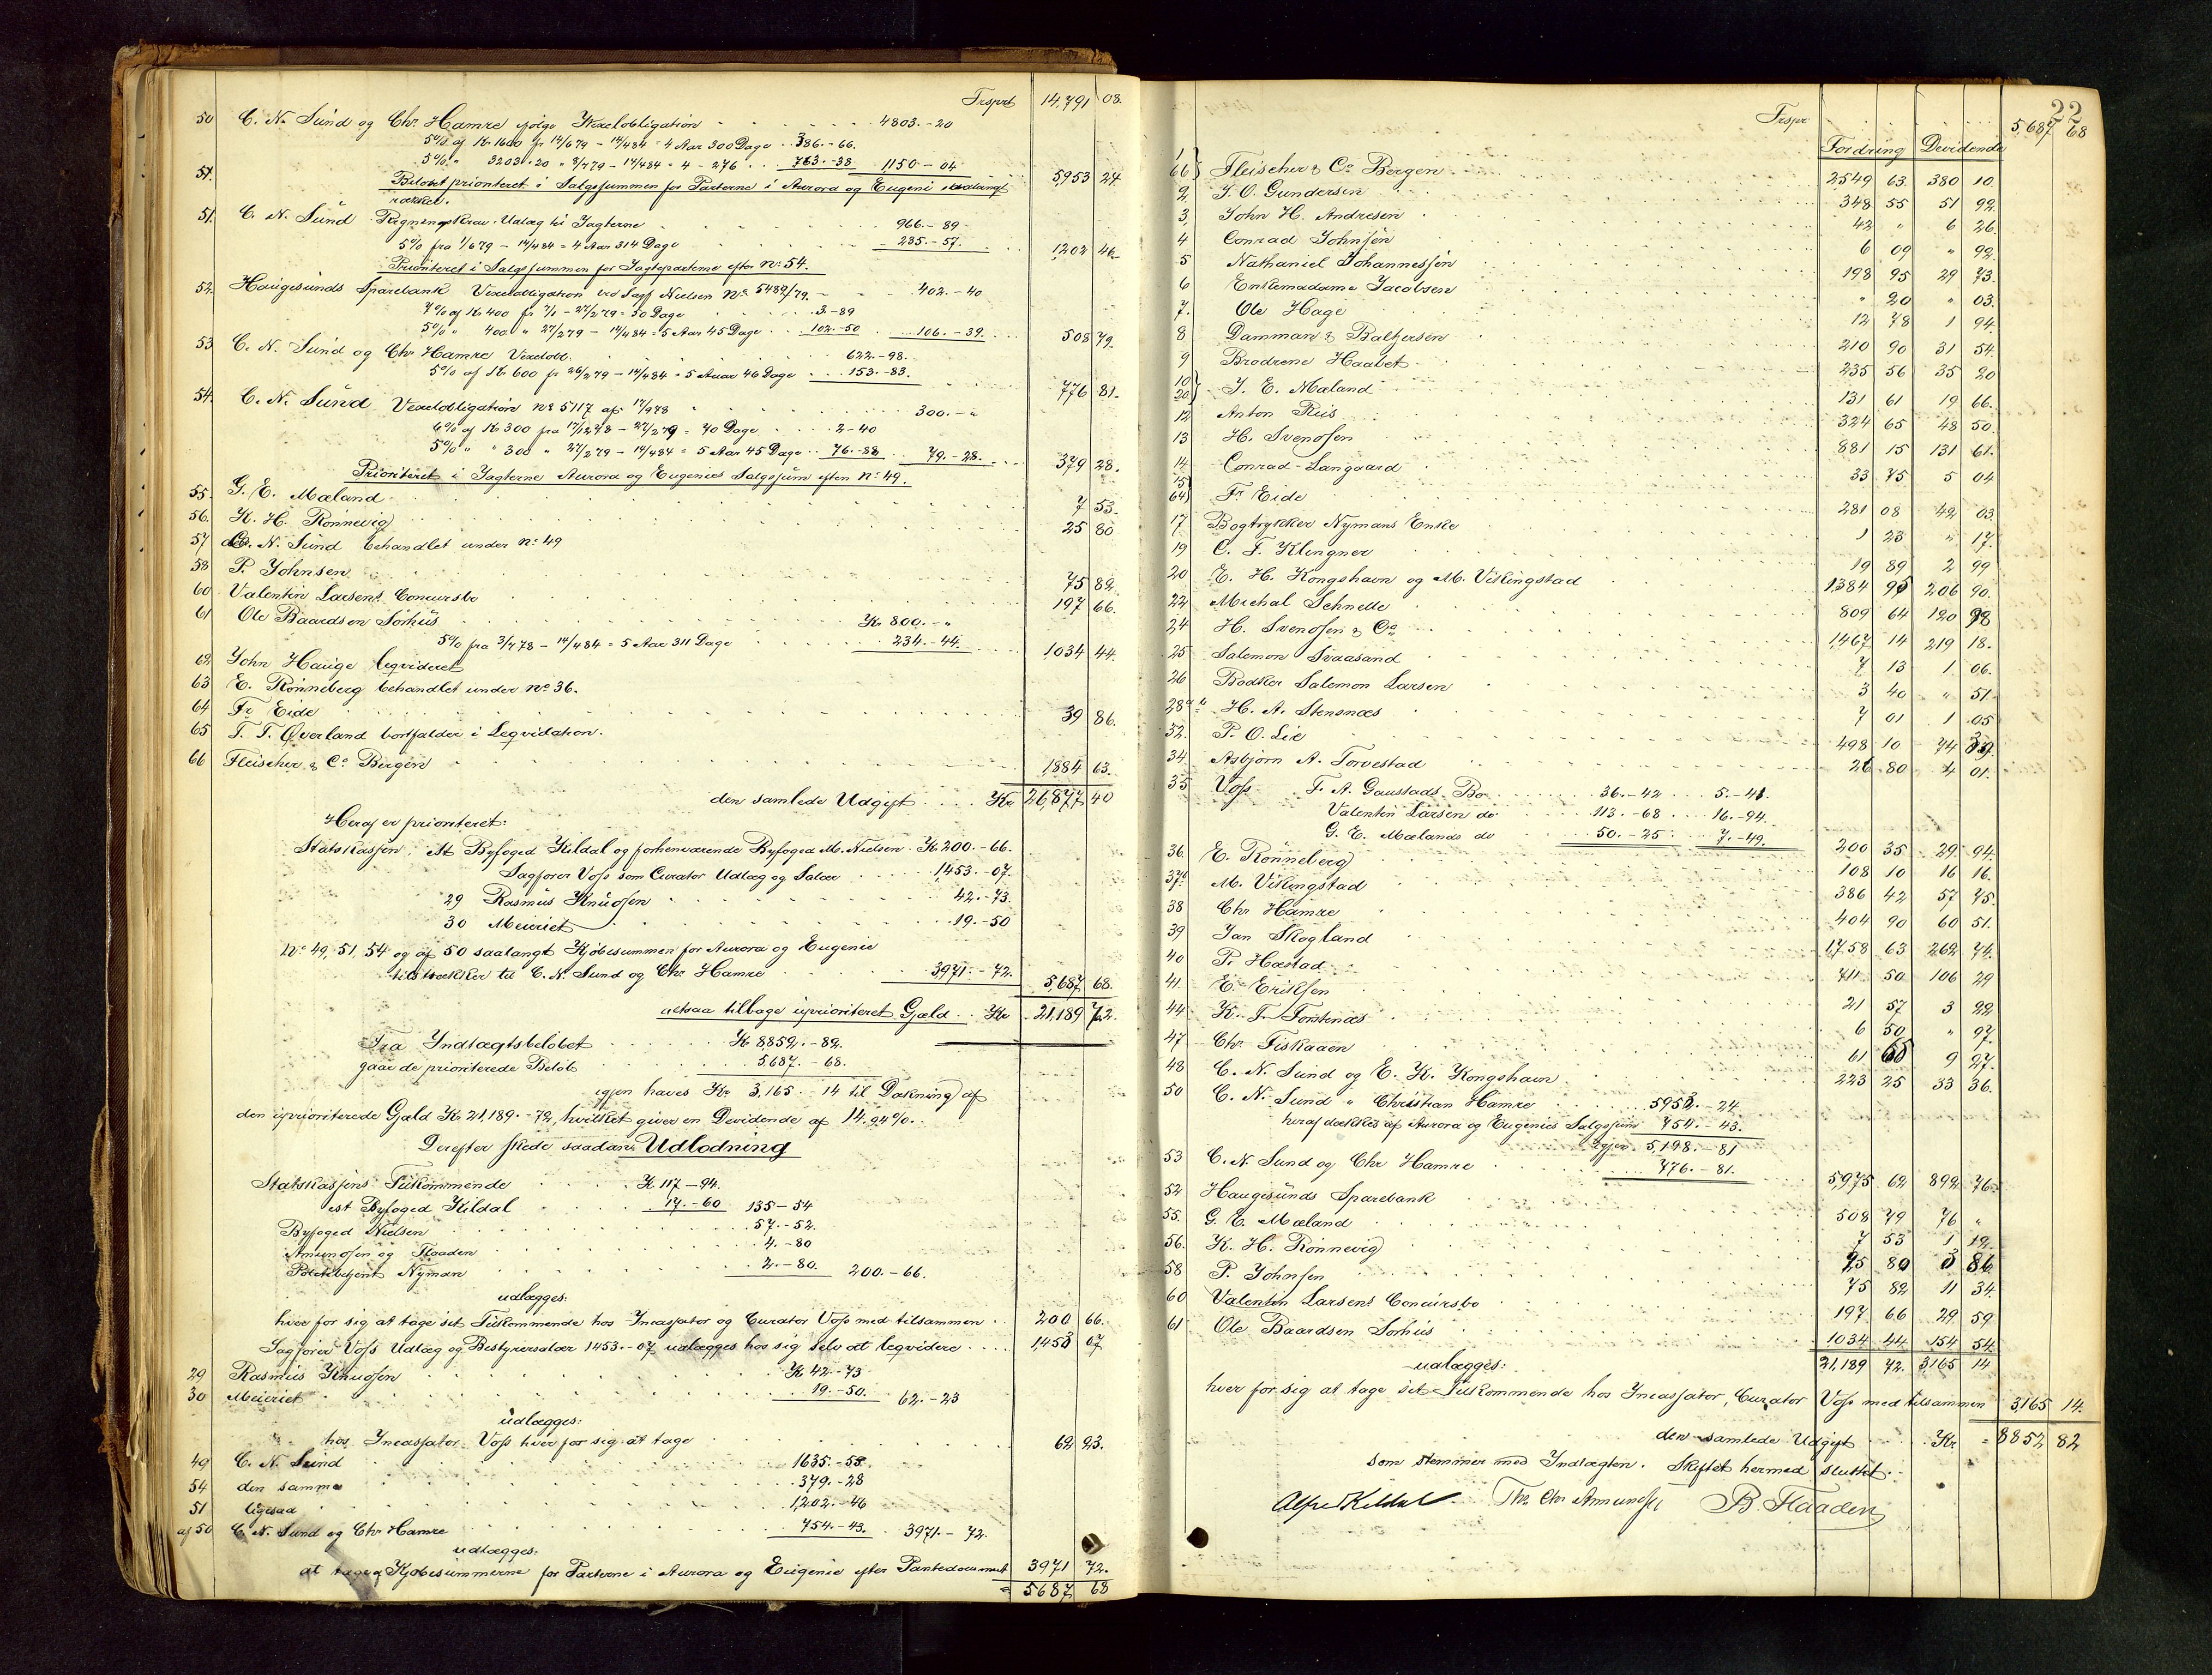 Trsprt 14,791 08.
50 C. N. Sund og Chr. Hamre ifølge Vexelobligation 4803.-20
5% af Kr 1600 fr 14/679 - 14/484 = 4 Aar 300 Dage 386.-66.
5% " 3203.20 " 3/779 - 14/484 = 4 - 276 763.-38 1150-04 5,953 24.
51. Beløbet prioriteret i Salgssummen for Parterne i Aurora og Eugeni saalangt
rækker.
51. C. N. Sund Regningskrav, Udlæg til Jagterne 966.-89
5% fra 1/679 - 14/484 = 4 Aar 314 Dage 235.-57. 1,202 46.
Prioriteret i Salgssummen for Jagteparterne efter No 54.
52. Haugesunds Sparebank Vexelobligation ved Sagf Nielsen No 5482/79. 402.-40
7% af Kr 400 fr 7/1 - 27/279 = 50 Dage 3.-89
5% " 400 " 27/279 - 14/484 = 5 Aar 45 Dage 102.-50 106.-39. 508 79.
53 C. N. Sund og Chr Hamre Vexelobl. 622.-98.
5% af Kr 600 fr 26/279 - 14/484 = 5 Aar 46 Dage 153.-83. 776 81.
54. C. N. Sund Vexelobligation No 5117 af 17/978 300.-"
6% af Kr 300 fra 17/1278 - 27/279 = 70 Dage 2-40
5% " " 300 " 27/279 - 14/484 = 5 Aar 45 Dage 76.-88 79.-28. 379 28.
Prioriteret i Jagterne Aurora og Eugenies Salgssum efter No 49.
55. G. E. Mæland 7 53.
56. K. H. Rønnevig 25 80
57 C. N. Sund behandlet under No 49
58 P. Johnsen 75 82.
60 Valentin Larsens Concursbo 197 66.
61 Ole Baardsen Sørhus Kr 800.-"
5% fra 3/778 - 14/484 = 5 Aar 311 Dage 234.-44. 1034 44.
62 John Hauge leqvideret
63 E. Rønneberg behandlet under No 36.
64 Fr Eide 39 86.
65 T. T. Øverland bortfalder i Leqvidation.
66 Fleischer & Co Bergen 1884 63.
den samlede Udgift Kr 26,877 40
Heraf er prioriteret:
Statskassen, cst Byfoged Kildal og forhenværende Byfoged M. Nielsen Kr 200.-66.
Sagfører Voss som Curator Udlæg og Salær 1,453.-07.
29 Rasmus Knudsen 42.-73.
30 Meieriet 19.-50
No 49, 51, 54 og af 50 saalangt Kjøbesummen for Aurora og Eugenie
tilstrækker til C. N. Sund og Chr Hamre 3971.-72. 5,687 68.
altsaa tilbage uprioriteret Gjæld Kr 21,189 72.
Fra Indtægtsbeløbet Kr 8,852.-82.
gaar de prioriterede Beløb 5,687.-68.
igjen haves Kr 3,165.-14 til Dækning af
den uprioriterede Gjæld Kr 21,189.-72, hvilket giver en Devidende af 14.94%.
Derefter skede saadan Udlodning
Statskassens Tilkommende Kr 117-94.
cst Byfoged Kildal 17.-60 135-54
Byfoged Nielsen 57.-52.
Amundsen og Flaaden 4.-80
Politibetjent Nyman 2.-80. 200.-66.
udlægges:
hver for sig at tage sit Tilkommende hos Incassator og Curator Voss med tilsammen 200 66.
Sagfører Voss Udlæg og Bestyrersalær 1453.-07 udlægges hos sig selv at leqvidere 1453 07
29 Rasmus Knudsen Kr 42-73
30 Meieriet 19.-50. 62.-23
udlægges:
" hos Incassator Voss hver for sig at tage 62 23.
49 C. N. Sund 1635.-55.
54 den samme 379.-28
51 ligesaa 1,202.-46
af 50 C. N. Sund og Chr Hamre 754.-43. 3971.-72.
udlægges:
at tage af Kjøbesummerne for Parterne i Aurora og Eugenie efter Pantedocument 3971 72.
5687 68
22
Trspr 5,687 68
Fordring Devidende
1 66} Fleischer & Co Bergen 2549 63. 380 10.
2. J. O. Gundersen 348 55 51 99.
3. John H. Andresen 42 " 6 26.
4 Conrad Johnsen 6 09 " 92.
5 Nathaniel Johannessen 198 95 29 73.
6 Enkemadame Jacobsen " 20 " 03.
7. Ole Hage 12 78 1 94.
8 Damman & Baltzersen 210 90 31 54.
9 Brødrene Haabet 235 56 35 20
10 20} J. E. Mæland 131 61 19 66.
12 Anton Riis 324 65 48 50.
13 H. Svendsen 881 15 131 61.
14 Conrad Langaard 33 75 5 04
15 64} Fr Eide 281 08 42 03.
17 Bogtrykker Nymans Enke 1 23 " 17.
19 C. F. Klingner 19 89 2 99
20 E. H. Kongshavn og M. Vikingstad 1384 95 206 90.
22 Michal Schnelle 809 64 120 98
24 H. Svendsen & Co 1,467 14 219 18.
25 Salemon Svaasand 7 13 1 06.
26 Bødker Salemon Larsen 3 40 " 51
28 H. A. Stensnæs 7 01 1 05
32. P. O. Lie 498 10 74 39.
34 Asbjørn A. Torvestad 26 80 4 01.
35 Voss F. A. Gaustads Bo 36.-42 5.-41.
Valentin Larsen do 113.-68 16.-94.
G. E. Mælands do 50.-25 7.-49. 200 35 29. 94.
36. E. Rønneberg 108 10 16 16.
37 M. Vikingstad 386 42 57 75.
38 Chr Hamre 404 90 60 51.
39 Jan Skogland 1,758 63 262 74.
40 P. Hæstad 711 50 106 29
41. E. Eriksen 21 57 3 22
44 K. T. Torstenæs 6 50 " 97.
47 Chr Fiskaaen 61 9 27.
48 C. N. Sund og E. K. Kongshavn 223 25 33 36.
50 C. N. Sund " Christian Hamre 5953.-24
heraf dækkes af Aurora og Eugenies Salgssum 754.-43.
igjen 5,198.-81
53 C. N. Sund og Chr Hamre 776.-81. 5,975 62 892 76
52 Haugesunds Sparebank 508 79 76 "
55. G. E. Mæland 7 53 1 12.
56. K. H. Rønnevig 25 80 3 86
58 P. Johnsen 75 82 11 34.
60 Valentin Larsens Concursbo 197 66 29 59
61 Ole Baardsen Sørhus 1034 44 154 54.
udlægges: 21,189 72. 3,165 14
hver for sig at tage sit Tilkommende hos Incassator, Curator Voss med tilsammen 3,165 14.
den samlede Udgift Kr 8852 82
som stemmer med Indtægten. Skiftet hermed sluttet.
Alfr Kildal Ths Chr Amundsen B. Flaaden